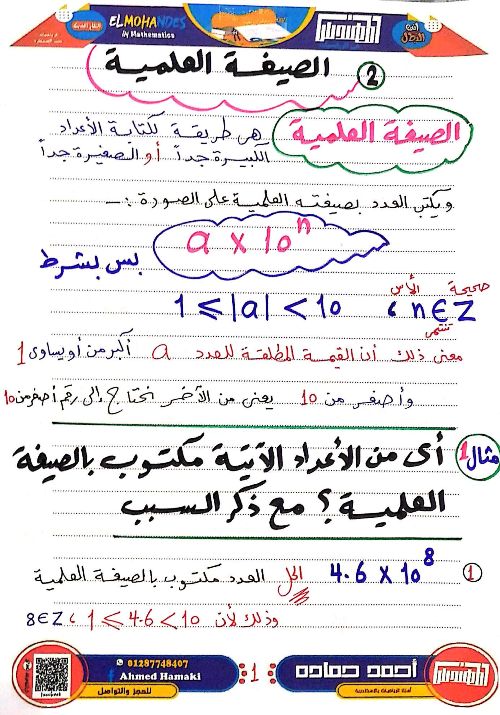 ELMOHANDES
in Mathematics
المهندس
أنت البطل
الصيغة العلمية
2
الصيغة العلمية
هى طريقة لكتابة الأعداد
الكبيرة جداً أو الصغيرة جداً
ويكتب العدد بصيغته العلمية على الصورة :-
a x 10ⁿ
بس بشرط
صحيحة الأس
1 ≤ |a| < 10 ، n ∈ Z
تنتمى
معنى ذلك أن القيمة المطلقة للعدد a أكبر من أو يساوى 1
وأصغر من 10 يعنى من الآخر نحتاج إلى رقم أصغر من 10
مثال 1 أى من الأعداد الآتية مكتوب بالصيغة
العلمية ؟ مع ذكر السبب
1 4.6 x 10⁸ الحل العدد مكتوب بالصيغة العلمية
وذلك لأن 1 ≤ 4.6 < 10 ، 8 ∈ Z
المهندس
أحمد حمادة
1
01287748407
Ahmed Hamaki
للحجز والتواصل